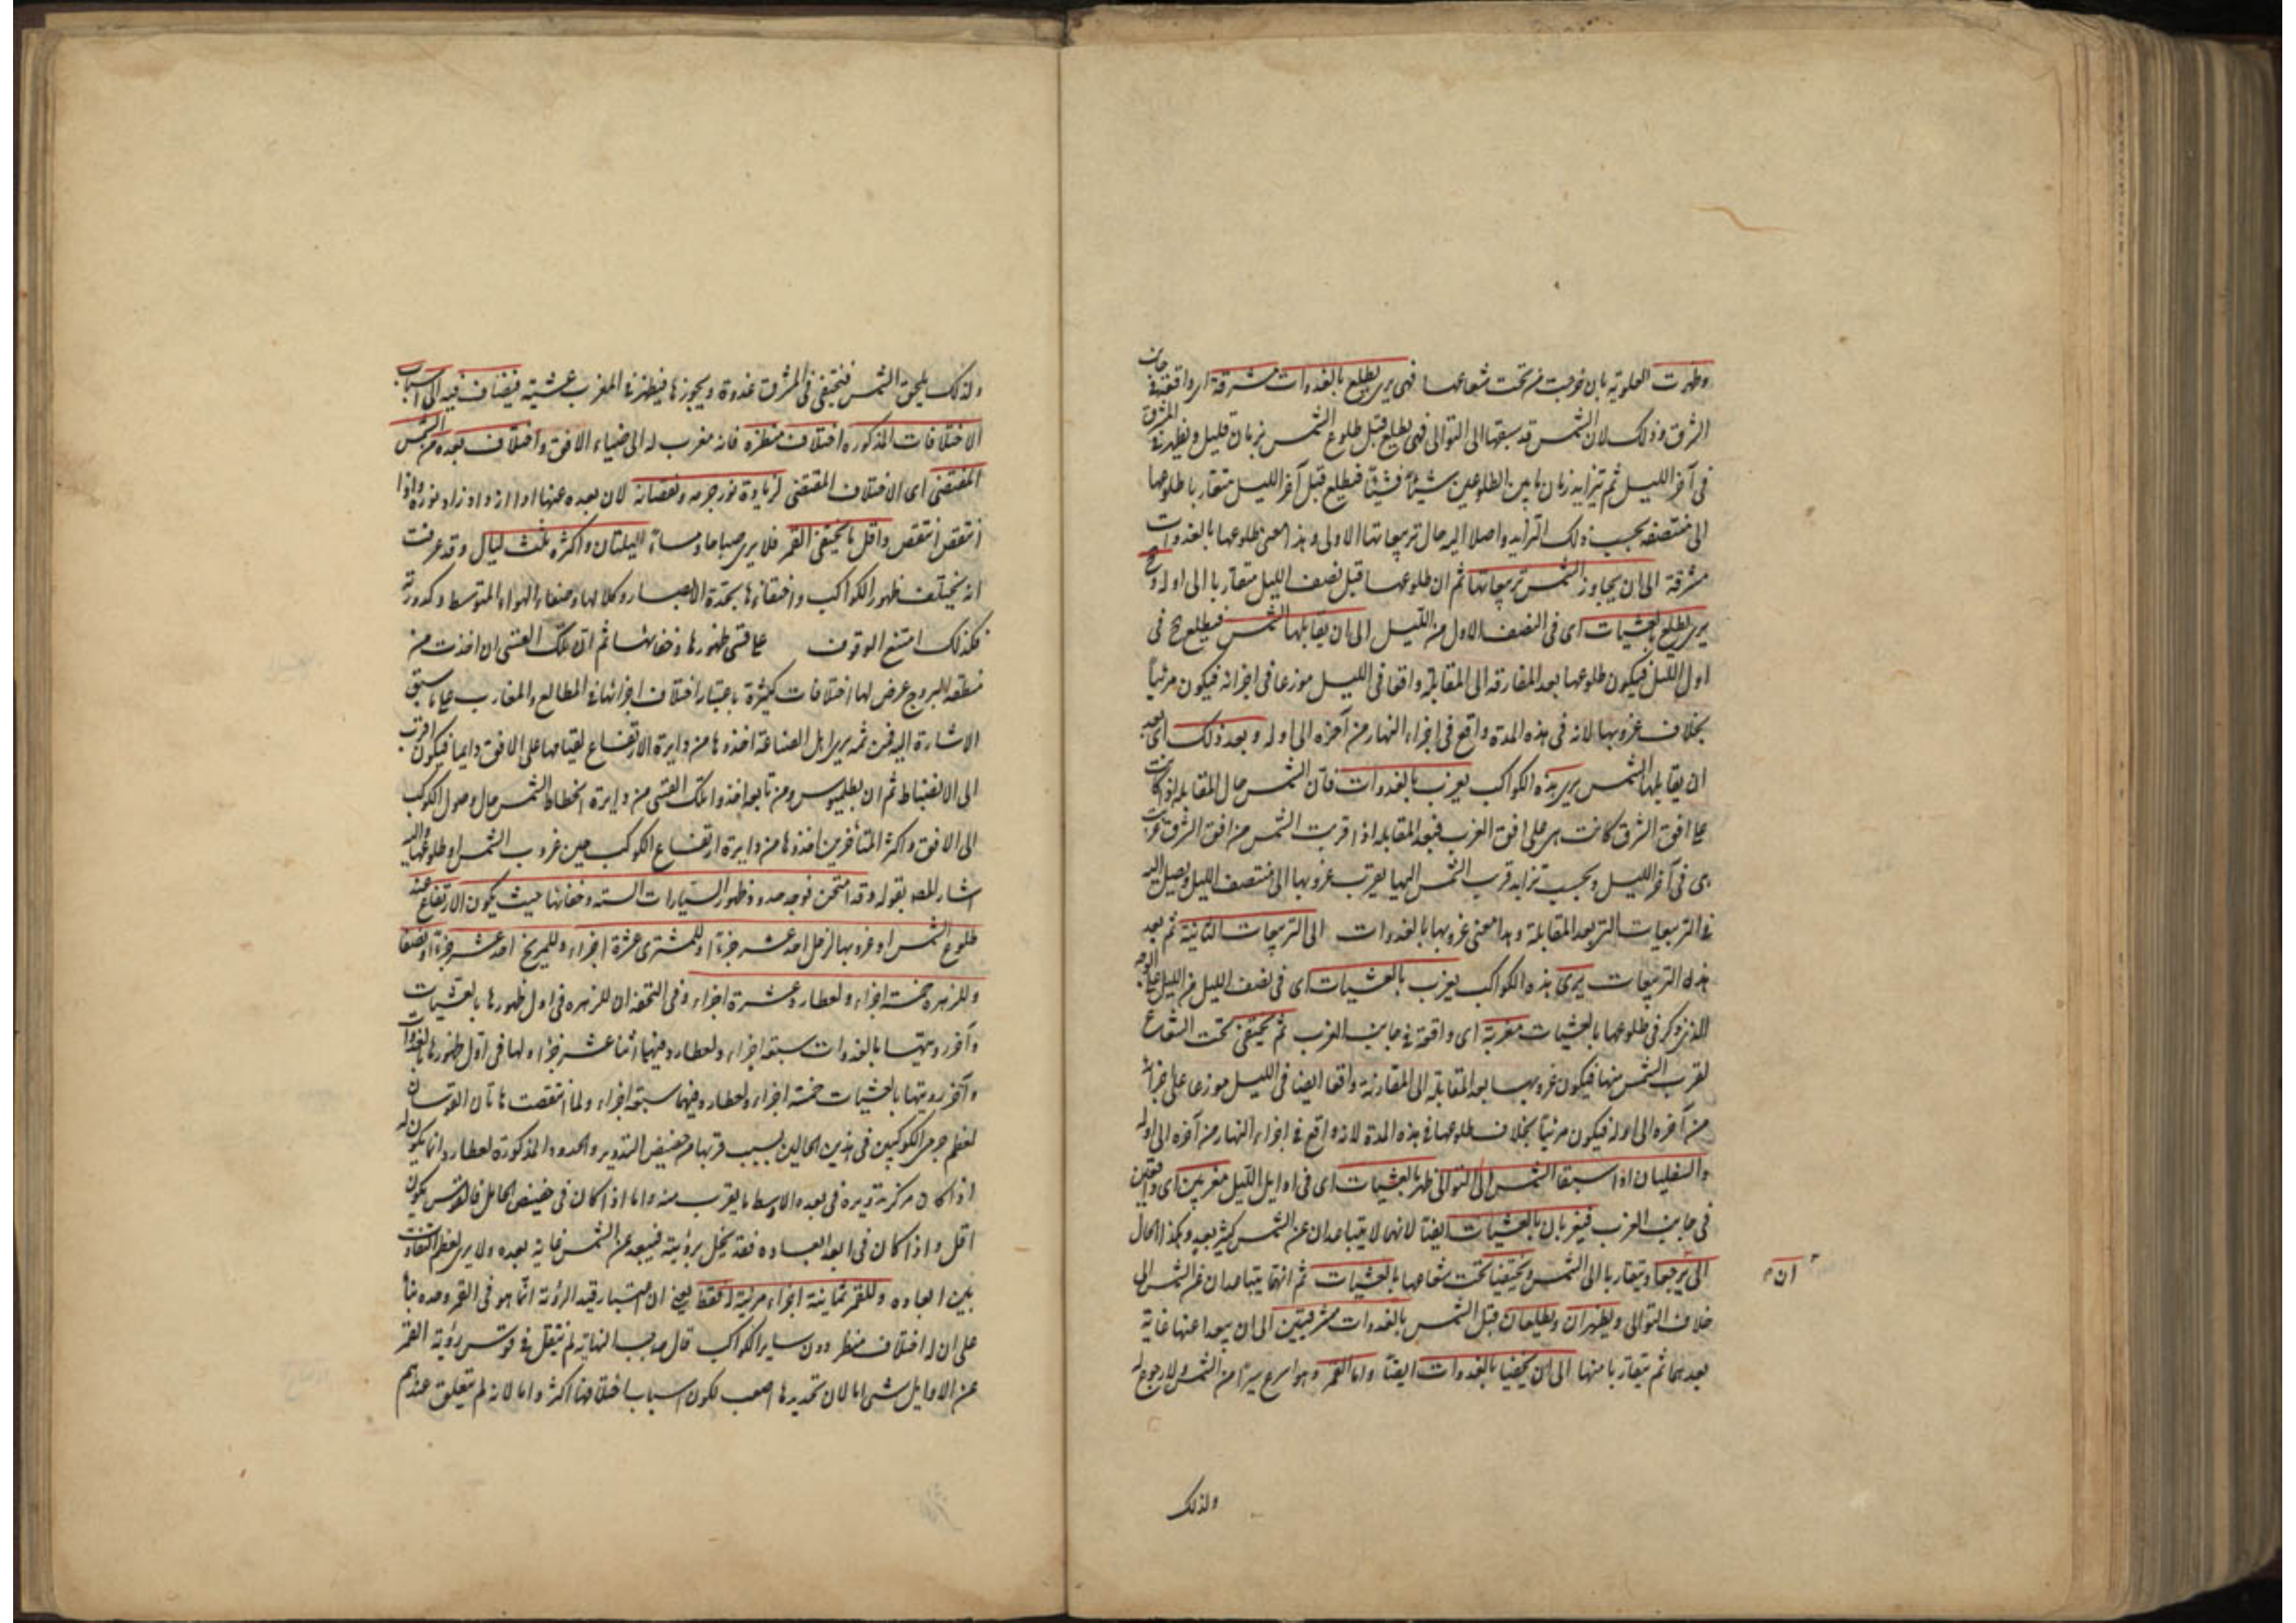 وظهرت العلوية بان خرجت من تحت شعاعها فهى يرى يطلع بالغدوات مشرقة اى واقعة فى جانب
الشرق وذلك لان الشمس قد سبقتها الى التوالى فهى يطلع قبل طلوع الشمس بزمان قليل ويظهر فى المشرق
فى آخر الليل ثم تتزايد زمان ما بين الطلوعين شيئا فشيئا فيطلع قبل آخر الليل متقاربا طلوعها
الى منتصفه بحسب ذلك التزايد واصلا اليه حال تربيعاتها الاولى وهذا معنى طلوعها بالغدوات
مشرقة الى ان يجاوز الشمس تربيعاتها ثم ان طلوعها قبل نصف الليل متقاربا الى اوله وح
يرى يطلع بالعشيات اى فى النصف الاول من الليل الى ان يقابلها الشمس فيطلع ح فى
اول الليل فيكون طلوعها بعد المفارقة الى المقابلة واقعا فى الليل موزعا فى اجزائه فيكون مرئيا
بخلاف غروبها لانه فى هذه المدة واقع فى اجزاء النهار من آخره الى اوله وبعد ذلك اى بعد
ان يقابلها الشمس يرى هذه الكواكب يغرب بالغدوات فان الشمس حال المقابلة اذا كانت
على افق الشرق كانت هى على افق الغرب فبعد المقابلة اذا قربت الشمس من افق الشرق غربت
هى فى آخر الليل وبحسب تزايد قرب الشمس اليها يقرب غروبها الى منتصف الليل ويصل اليه
فى التربيعات التى بعد المقابلة وهذا معنى غروبها بالغدوات الى التربيعات الثانية ثم بعد
هذه التربيعات يرى هذه الكواكب يغرب بالعشيات اى فى نصف الليل من الليل على الوجه
الذى ذكر فى طلوعها بالعشيات مغربة اى واقعة فى جانب الغرب ثم يختفى تحت الشعاع
لقرب الشمس منها فيكون غروبها بعد المقابلة الى المقارنة واقعا ايضا فى الليل موزعا على اجزائه
من آخره الى اوله فيكون مرئيا بخلاف طلوعها فى هذه المدة لانه واقع فى اجزاء النهار من آخره الى اوله
والسفليان اذا سبقا الشمس الى التوالى ظهرا بالعشيات اى فى اوايل الليل مغربين اى واقعين
فى جانب الغرب فيغربان بالعشيات ايضا لانهما لا يتباعدان عن الشمس كثير بعد وهكذا الحال
الى يرجعا ويتقاربا الى الشمس ويختفيا تحت شعاعها بالعشيات ثم انهما يتباعدان عن الشمس الى
ان
خلاف التوالى ويظهران ويطلعان قبل الشمس بالغدوات مشرقيين الى ان يبعدا عنها غاية
بعدهما ثم يتقاربا منها الى ان يختفيا بالغدوات ايضا واما القمر وهو اسرع سيرا من الشمس ولا رجوع له
ولذلك
ولذلك يلحق الشمس فيختفى فى المشرق غدوة ويجوزها فيظهر فى المغرب عشية فيضاف فيه الى اسباب
الاختلافات المذكورة اختلاف منظره فانه مغرب له الى ضياء الافق واختلاف بعده من الشمس
المقتضى اى الاختلاف المقتضى لزيادة نور جرمه ونقصانه لان بعده عنها اذا ازداد زاد نوره واذا
انتقص انتقص واقل ما يختفى القمر فلا يرى صباحا ومساء الليلتان واكثره ثلث ليال وقد عرفت
انه يختلف ظهور الكواكب واختفاؤها بحدة الابصار وكلالها وصفاء الهواء المتوسط وكدورته
فكذلك امتنع الوقوف على قسى ظهورها وخفائها ثم ان تلك القسى ان اخذت من
منطقة البروج عرض لها اختلافات كثيرة باعتبار اختلاف اجزائها فى المطالع والمغارب على ما سبق
الاشارة اليه فمن ثمه يرى اهل الصناعة اخذها من دايرة الارتفاع لقيامها على الافق دايما فيكون اقرب
الى الانضباط ثم ان بطلميوس ومن تابعه اخذوا تلك القسى من دايرة انحطاط الشمس حال وصول الكوكب
الى الافق واكثر المتأخرين اخذها من دايرة ارتفاع الكوكب حين غروب الشمس او طلوعها واليه
اشار المصـ بقوله وقد امتحن فوجد حدود ظهور السيارات الستة وخفائها حيث يكون الارتفاع عند
طلوع الشمس او غروبها لزحل احد عشر جزءا وللمشترى عشرة اجزاء وللمريخ احد عشر جزءا ونصفا
وللزهرة خمسة اجزاء ولعطارد عشرة اجزاء وفى التحفة ان للزهرة فى اول ظهورها بالعشيات
وآخر رؤيتها بالغدوات سبعة اجزاء ولعطارد فيهما اثنا عشر جزءا ولها فى اول ظهورها بالغدوات
وآخر رؤيتها بالعشيات خمسة اجزاء ولعطارد فيهما سبعة اجزاء ولما انتقصت هاتان القوسان
لعظم جرمى الكوكبين فى هذين الحالين بسبب قربهما من حضيض التدوير والحدود المذكورة لعطارد انما يكون له
اذا كان مركز تدويره فى بعده الاوسط ما يقرب منه واما اذا كان فى حضيض الحامل فالقوس يكون
اقل واذا كان فى ابعد ابعاده فقد يخل برؤيته فيبعد عن الشمس غاية بعده ولا يرى لعظم التفاوت
بين ابعاده وللقمر ثمانية اجزاء مرئية فقط يعنى ان اعتبار قيد الرؤية انما هو فى القمر وحده بناء
على ان له اختلاف منظر دون ساير الكواكب قال صاحب النهاية لم ينقل فى قوس رؤية القمر
عن الاوايل شى اما لان تحديدها اصعب لكون اسباب اختلافها اكثر واما لانه لم يتعلق عندهم